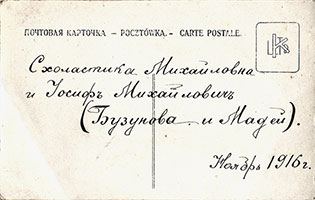 ПОЧТОВАЯ КАРТОЧКА – POCZTÓWKA. – CARTE POSTALE.
Схоластика Михайловна
и Іосифъ Михайловичъ
(Бузунова и Мадей).
Ноябрь 1916 г.